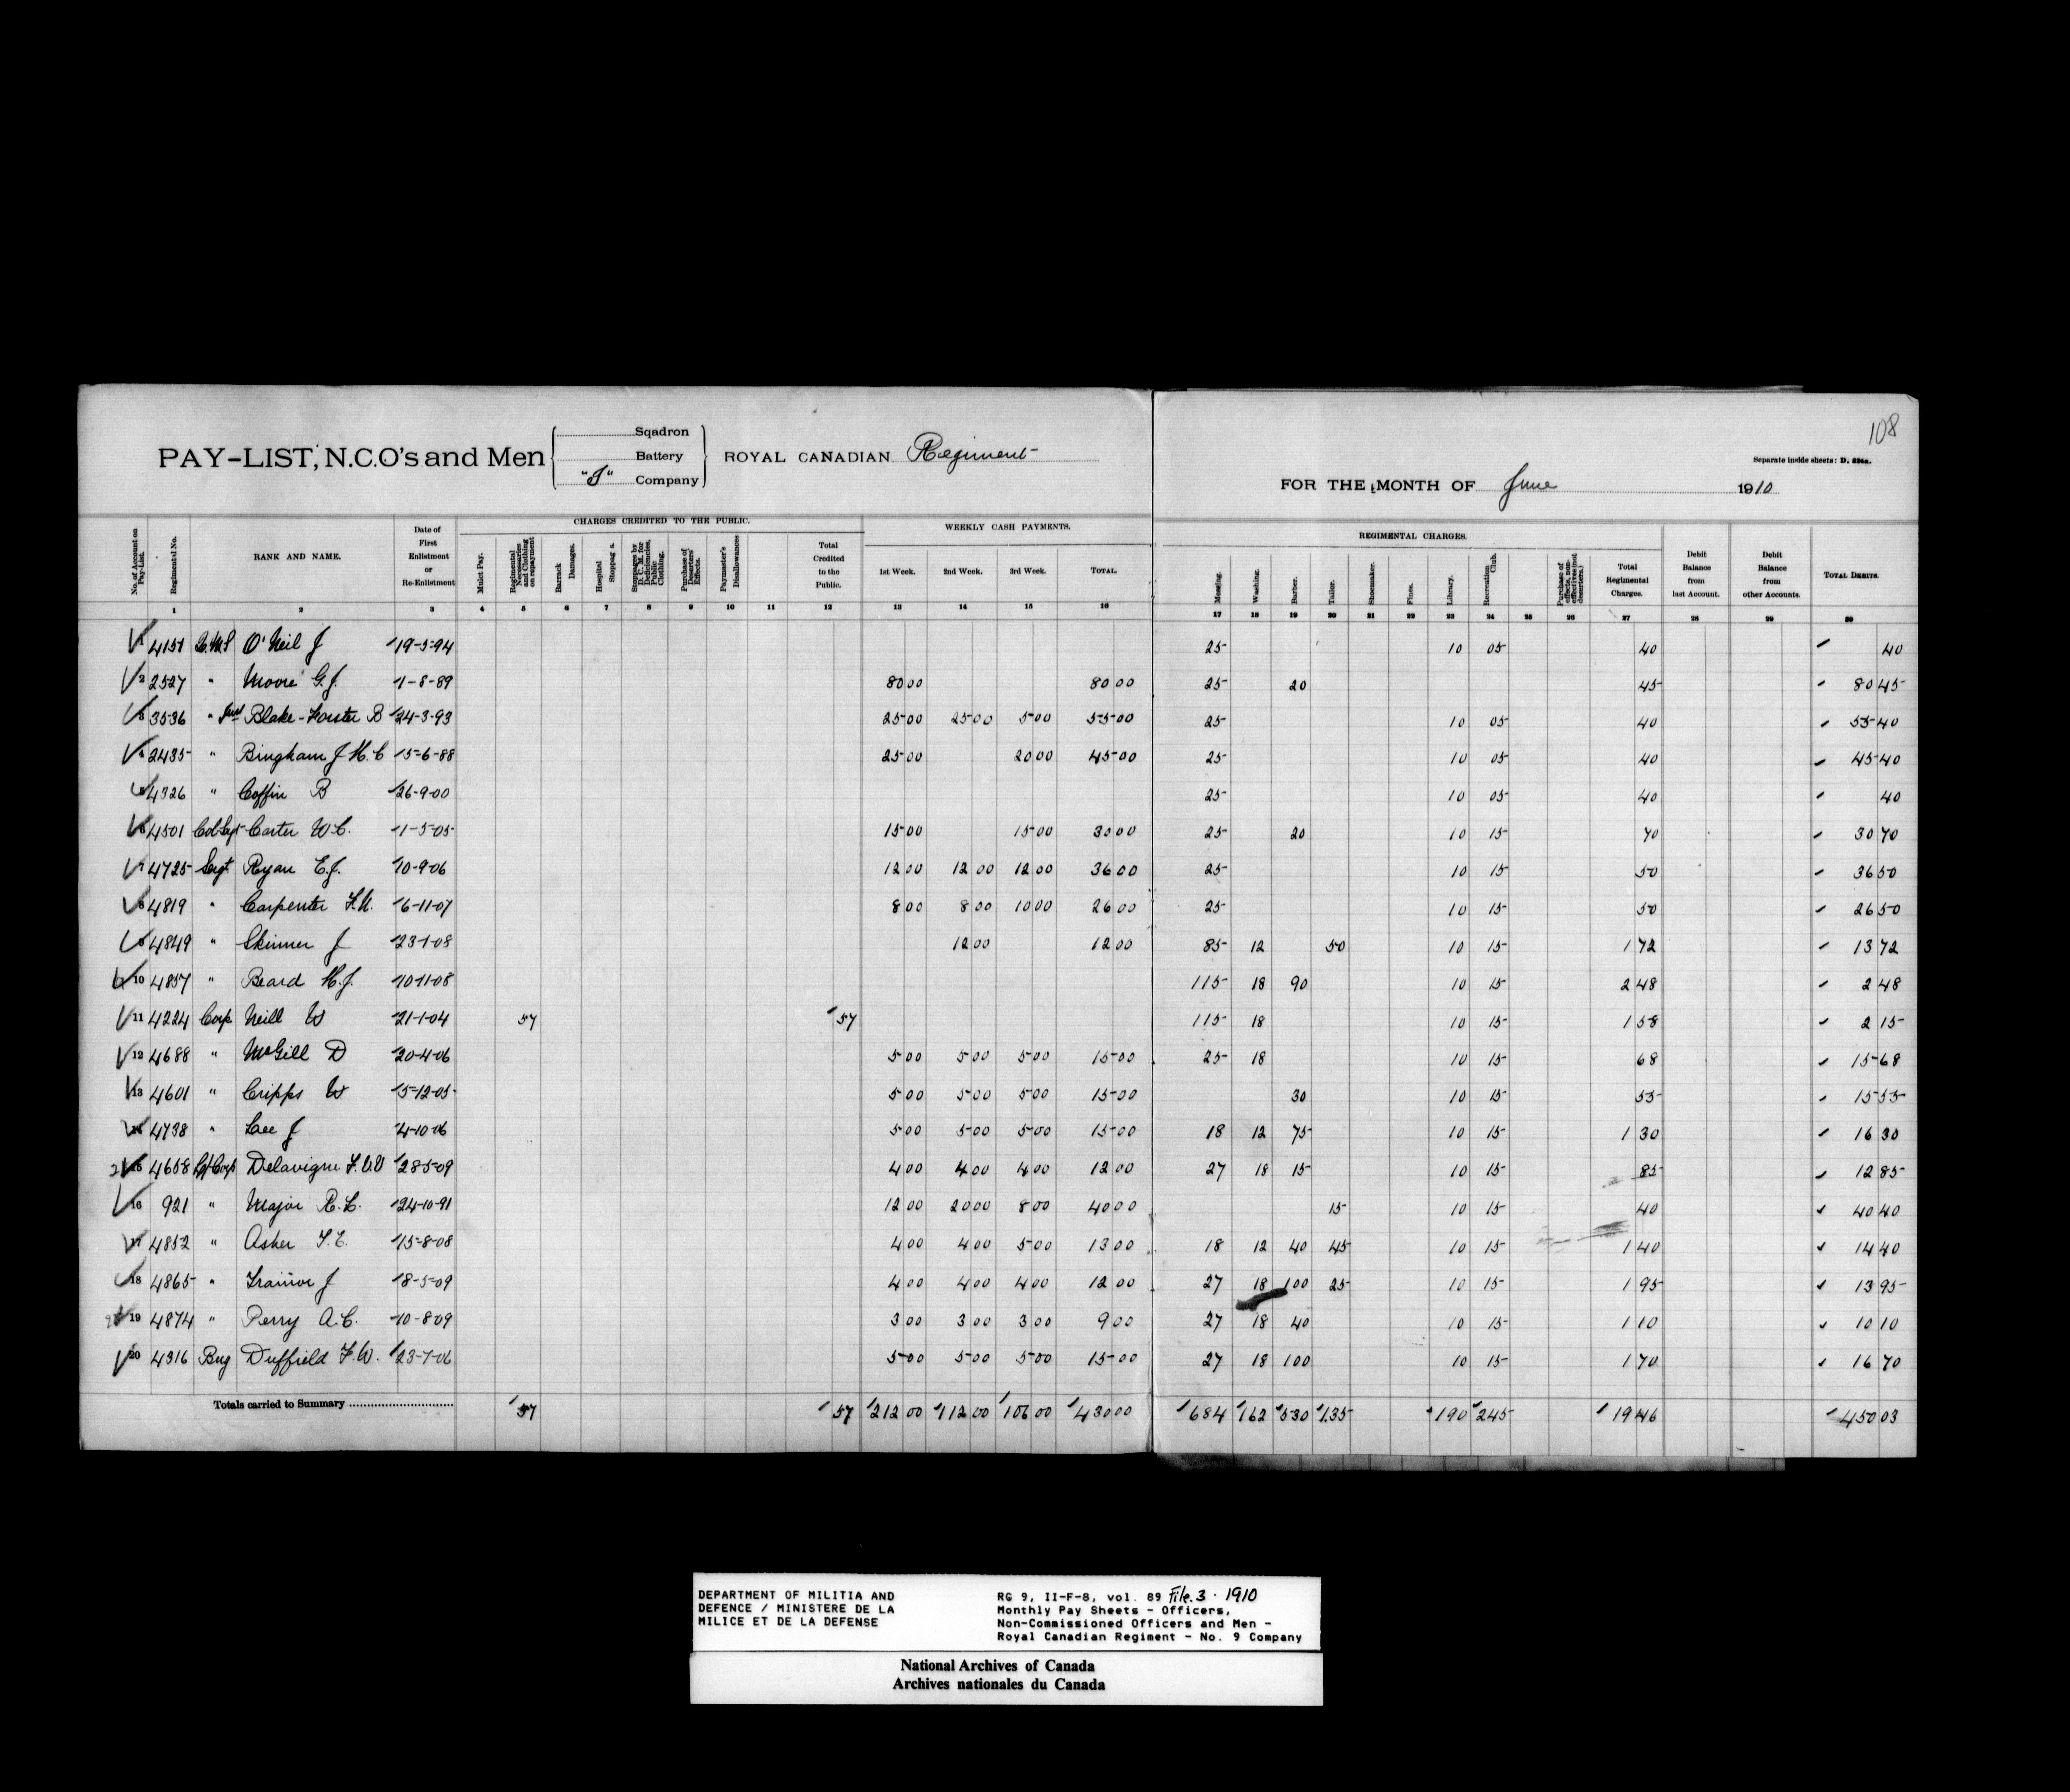 108
PAY-LIST, N.C.O's and Men
Sqadron
Battery
"I" Company
ROYAL CANADIAN Regiment
Separate inside sheets: D.
FOR THE MONTH OF June 1910
No. of Account on Pay-List. Regimental No. RANK AND NAME. Date of First Enlistment or Re-Enlistment CHARGES CREDITED TO THE PUBLIC. WEEKLY CASH PAYMENTS. REGIMENTAL CHARGES. Debit Balance from last Account. Debit Balance from other Accounts. TOTAL DEBITS.
Mulct Pay. Regimental Necessaries and Clothing on repayment Barrack Damages. Hospital Stoppag s. Stoppages by D. C. M. for Deficiencies, Public Clothing. Purchase of Deserters' Effects. Paymaster's Disallowances Total Credited to the Public. 1st Week. 2nd Week. 3rd Week. TOTAL. Messing. Washing. Barber. Tailor. Shoemaker. Fines. Library. Recreation Club. Purchase of effects, non-effectives (not deserters.) Total Regimental Charges.
1 2 3 4 5 6 7 8 9 10 11 12 13 14 15 16 17 18 19 20 21 22 23 24 25 26 27 28 29 30
1 4151 Q.M.S O'Neil J 19-5-94 25 10 05 40 40
2 2527 " Moore G.J. 1-8-89 80 00 80 00 25 20 45 80 45
3 3536 " Blake-Forster B 24-3-93 25 00 25 00 5 00 55 00 25 10 05 40 55 40
4 2435 " Bingham J H.C 15-6-88 25 00 20 00 45 00 25 10 05 40 45 40
5 4326 " Coffin B 26-9-00 25 10 05 40 40
6 4501 Col-Sgt Carter W.C. 1-5-05 15 00 15 00 30 00 25 20 10 15 70 30 70
7 4725 Sergt Ryan E.J. 10-9-06 12 00 12 00 12 00 36 00 25 10 15 50 36 50
8 4819 " Carpenter F.N. 6-11-07 8 00 8 00 10 00 26 00 25 10 15 50 26 50
9 4849 " Skinner J 23-1-08 12 00 12 00 85 12 50 10 15 1 72 13 72
10 4857 " Beard H.J. 10-11-08 1 15 18 90 10 15 2 48 2 48
11 4224 Corp Neill W 21-1-04 57 57 1 15 18 10 15 1 58 2 15
12 4688 " McGill D 20-4-06 5 00 5 00 5 00 15 00 25 18 10 15 68 15 68
13 4601 " Cripps W 15-12-05 5 00 5 00 5 00 15 00 30 10 15 55 15 55
14 4738 " Lee J 4-10-06 5 00 5 00 5 00 15 00 18 12 75 10 15 1 30 16 30
15 4658 L/Corp Delavigne F.V.V 28-5-09 4 00 4 00 4 00 12 00 27 18 15 10 15 85 12 85
16 921 " Major R.L. 24-10-91 12 00 20 00 8 00 40 00 15 10 15 40 40 40
17 4852 " Asher F.E. 15-8-08 4 00 4 00 5 00 13 00 18 12 40 45 10 15 1 40 14 40
18 4865 " Trainor J 18-5-09 4 00 4 00 4 00 12 00 27 18 1 00 25 10 15 1 95 13 95
19 4874 " Perry A.C. 10-8-09 3 00 3 00 3 00 9 00 27 18 40 10 15 1 10 10 10
20 4316 Bug Duffield F.W. 23-7-06 5 00 5 00 5 00 15 00 27 18 1 00 10 15 1 70 16 70
Totals carried to Summary 57 57 212 00 112 00 106 00 430 00 6 84 1 62 5 30 1 35 1 90 2 45 19 46 450 03
DEPARTMENT OF MILITIA AND
DEFENCE / MINISTERE DE LA
MILICE ET DE LA DEFENSE
RG 9, II-F-8, vol. 89 File.3 · 1910
Monthly Pay Sheets - Officers,
Non-Commissioned Officers and Men -
Royal Canadian Regiment - No. 9 Company
National Archives of Canada
Archives nationales du Canada